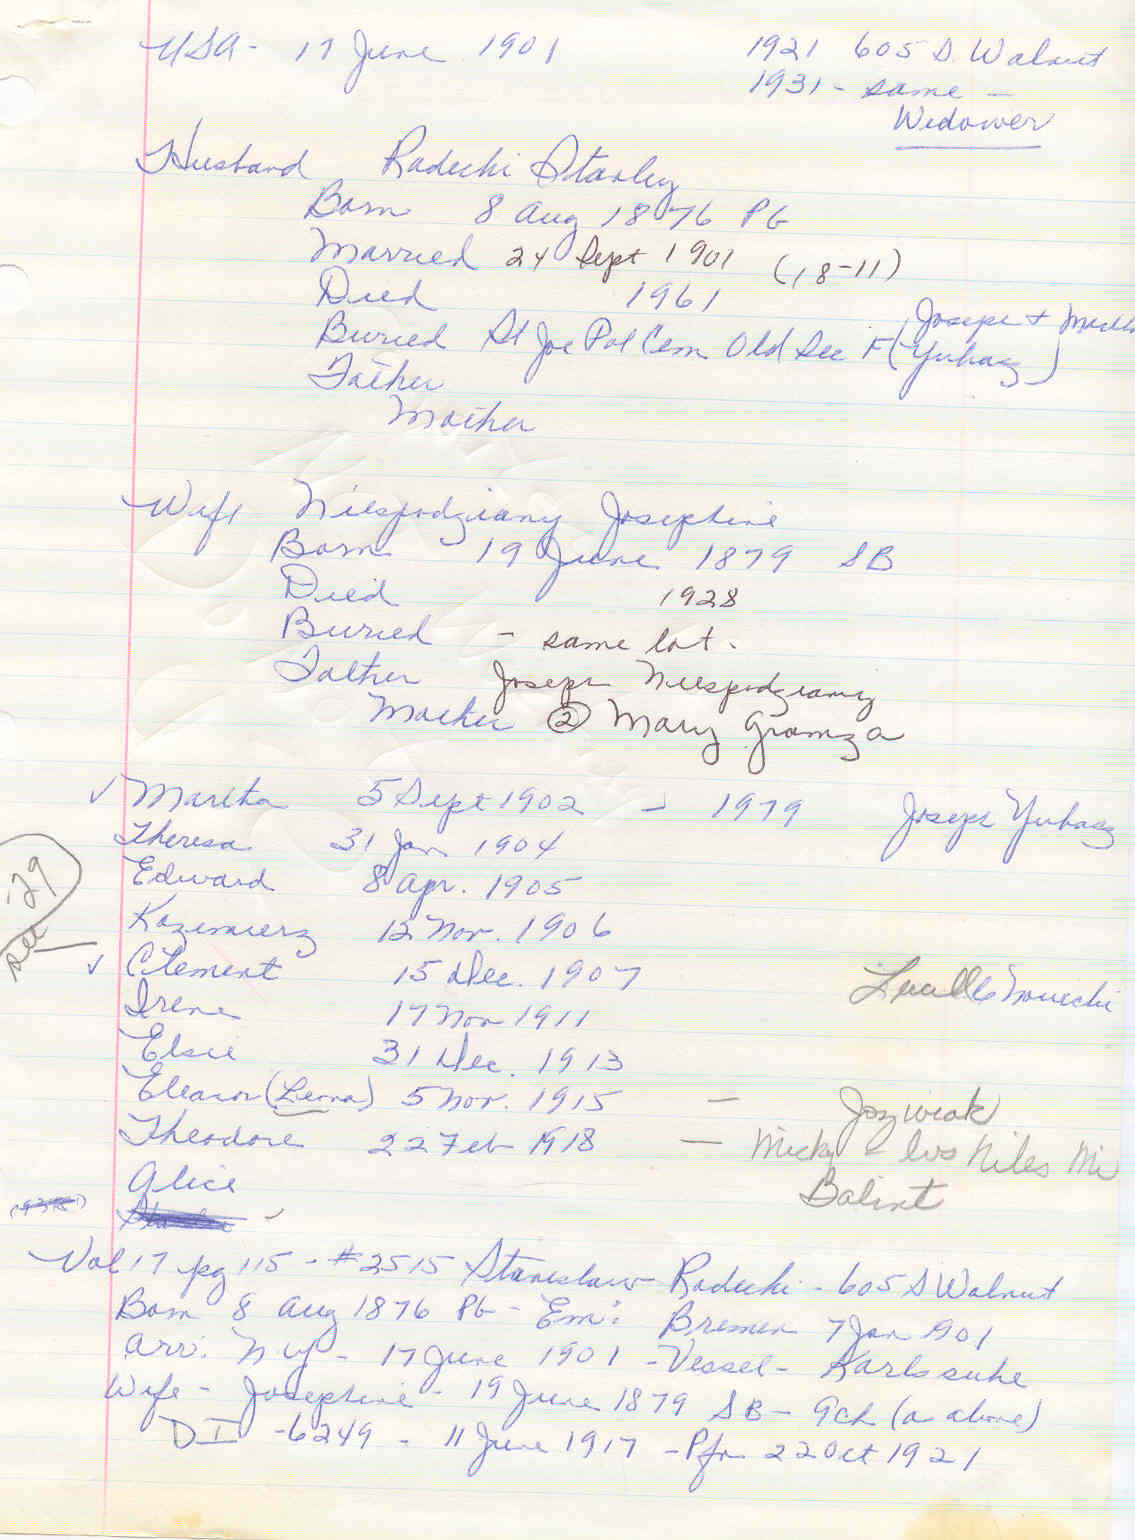 USA - 17 June 1901
1921 605 S. Walnut
1931 - same -
Widower
Husband Radecki Stanley
Born 8 Aug 1876 PG
Married 24 Sept 1901 (18-11)
Died 1961
Buried St Joe Pol Cem Old Sec F (Joseph + Martha Yuhasz)
Father
Mother
Wife Niespodziany Josephine
Born 19 June 1879 SB
Died 1928
Buried - same lot.
Father Joseph Niespodziany
Mother ② Mary Gramza
✓ Martha 5 Sept 1902 - 1979 Joseph Yuhasz
Theresa 31 Jan 1904
Edward 8 Apr. 1905
-29
Kazimierz 12 Nov. 1906
See
✓ Clement 15 Dec. 1907 Lucille Nowicki
Irene 17 Nov 1911
Elsie 31 Dec. 1913
Eleanor (Lerna) 5 Nov. 1915 - Jozwiak
Theodore 22 Feb 1918 - Micky & lvs Niles Mi
Alice Balint
Vol 17 pg 115 - #2515 Stanislaw Radecki - 605 S Walnut
Born 8 Aug 1876 PG - Em: Bremen 7 Jan 1901
Arr: NY - 17 June 1901 - Vessel - Karlssuhe
Wife - Josephine - 19 June 1879 SB - 9ch (as above)
DI - 6249 - 11 June 1917 - Pfn 22 Oct 1921